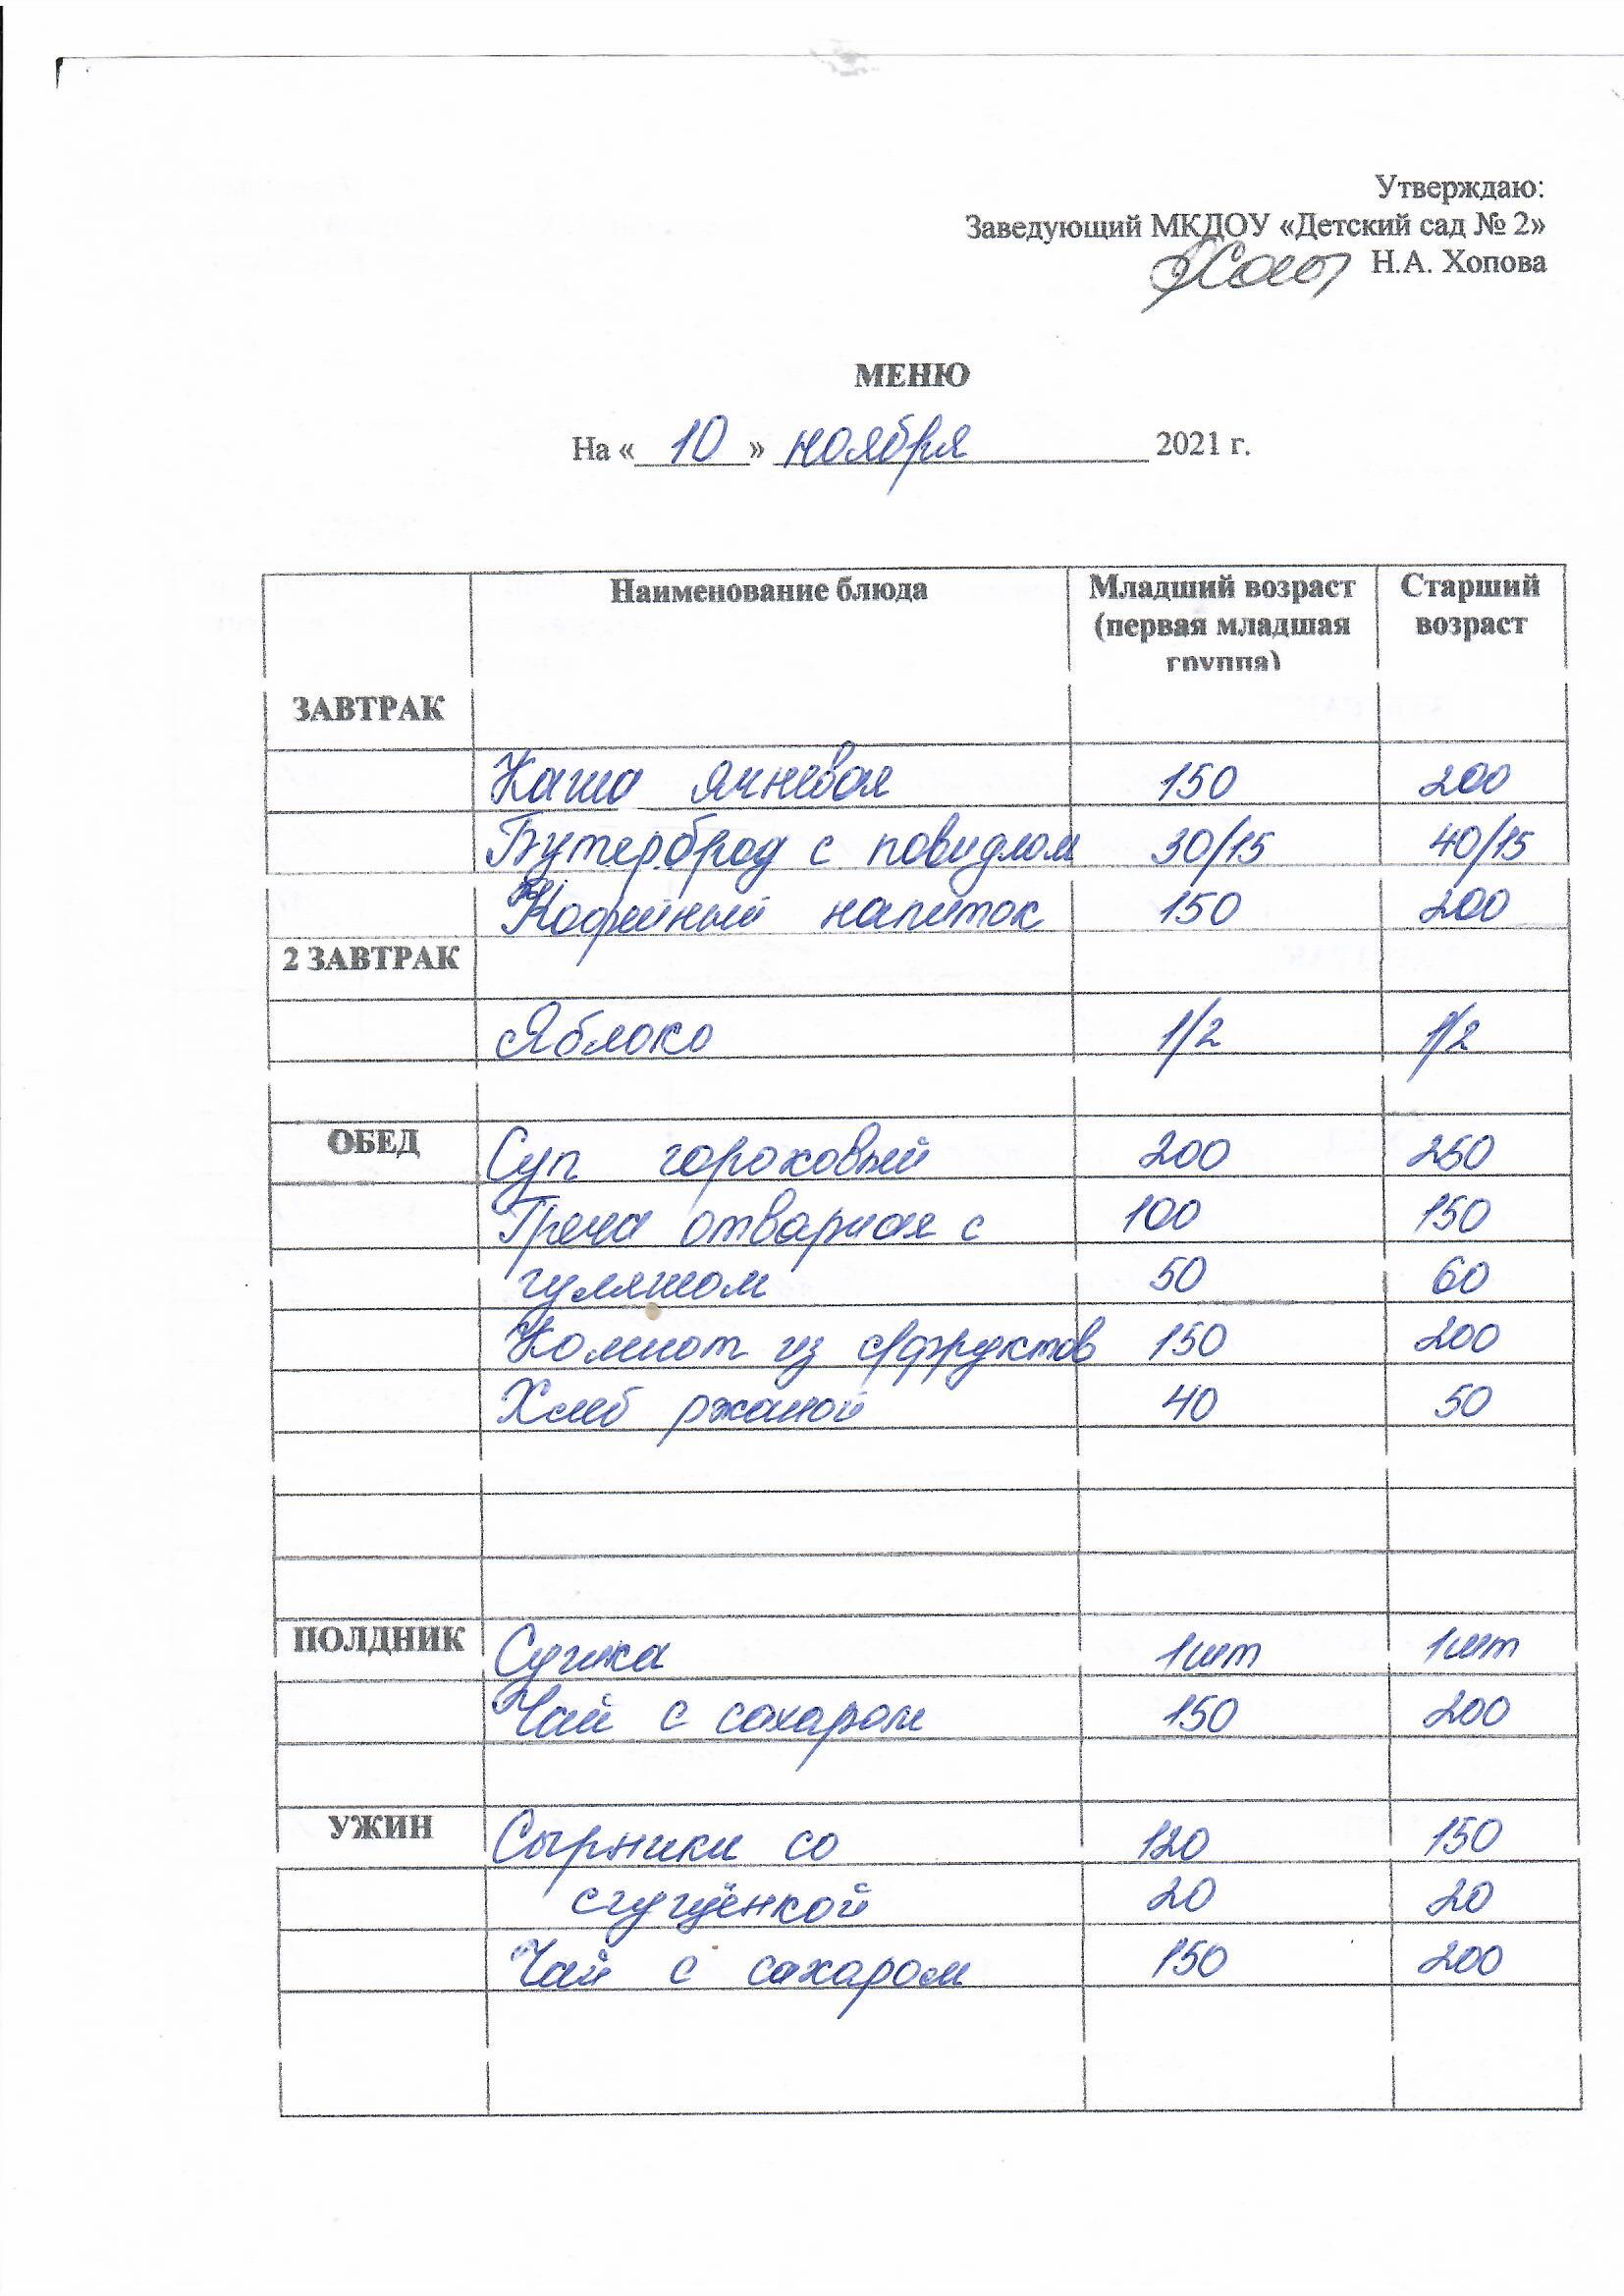 Утверждаю:
Заведующий МКДОУ «Детский сад № 2»
Н.А. Хопова
МЕНЮ
На « 10 » ноября 2021 г.
Наименование блюда Младший возраст (первая младшая группа) Старший возраст
ЗАВТРАК
Каша ячневая 150 200
Бутерброд с повидлом 30/15 40/15
Кофейный напиток 150 200
2 ЗАВТРАК
Яблоко 1/2 1/2
ОБЕД Суп гороховый 200 250
Греча отварная с 100 150
гуляшом 50 60
Компот из с/фруктов 150 200
Хлеб ржаной 40 50
ПОЛДНИК Сушка 1шт 1шт
Чай с сахаром 150 200
УЖИН Сырники со 120 150
сгущёнкой 20 20
Чай с сахаром 150 200